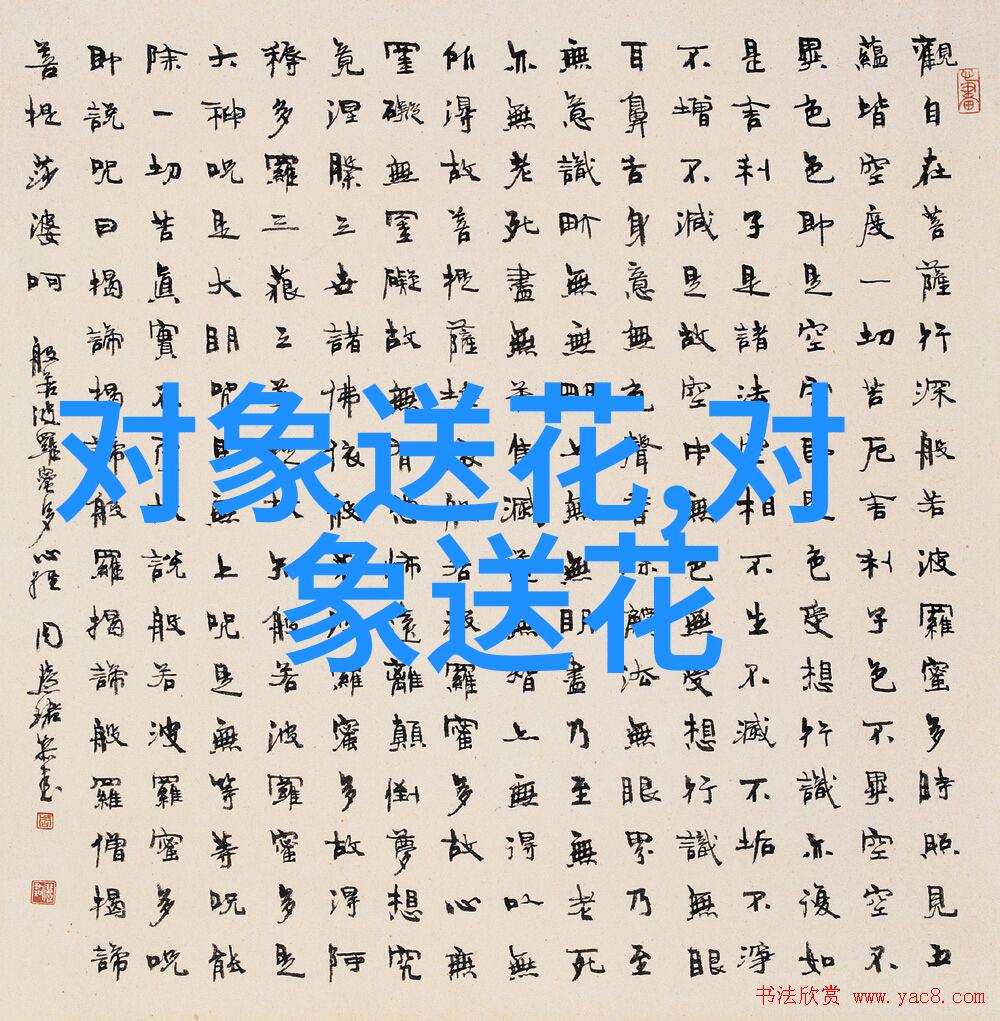 觀自在菩薩行深般若波羅蜜多時照見五
蘊皆空度一切苦厄舍利子色不異空空不
異色色即是空空即是色受想行識亦復如
是舍利子是諸法空相不生不滅不垢不淨
不增不減是故空中無色無受想行識無眼
耳鼻舌身意無色聲香味觸法無眼界乃至
無意識界無無明亦無無明盡乃至無老死
亦無老死盡無苦集滅道無智亦無得以無
所得故菩提薩埵依般若波羅蜜多故心無
罣礙無罣礙故無有恐怖遠離顛倒夢想究
竟涅槃三世諸佛依般若波羅蜜多故得阿
耨多羅三藐三菩提故知般若波羅蜜多是
大神呪是大明呪是無上呪是無等等呪能
除一切苦真實不虛故說般若波羅蜜多呪
即說呪曰揭諦揭諦般羅揭諦般羅僧揭諦
菩提莎婆呵
般若波羅蜜多心經 周慧珺恭書
对象送花,对
象送花
书法欣赏 www.yac8.com